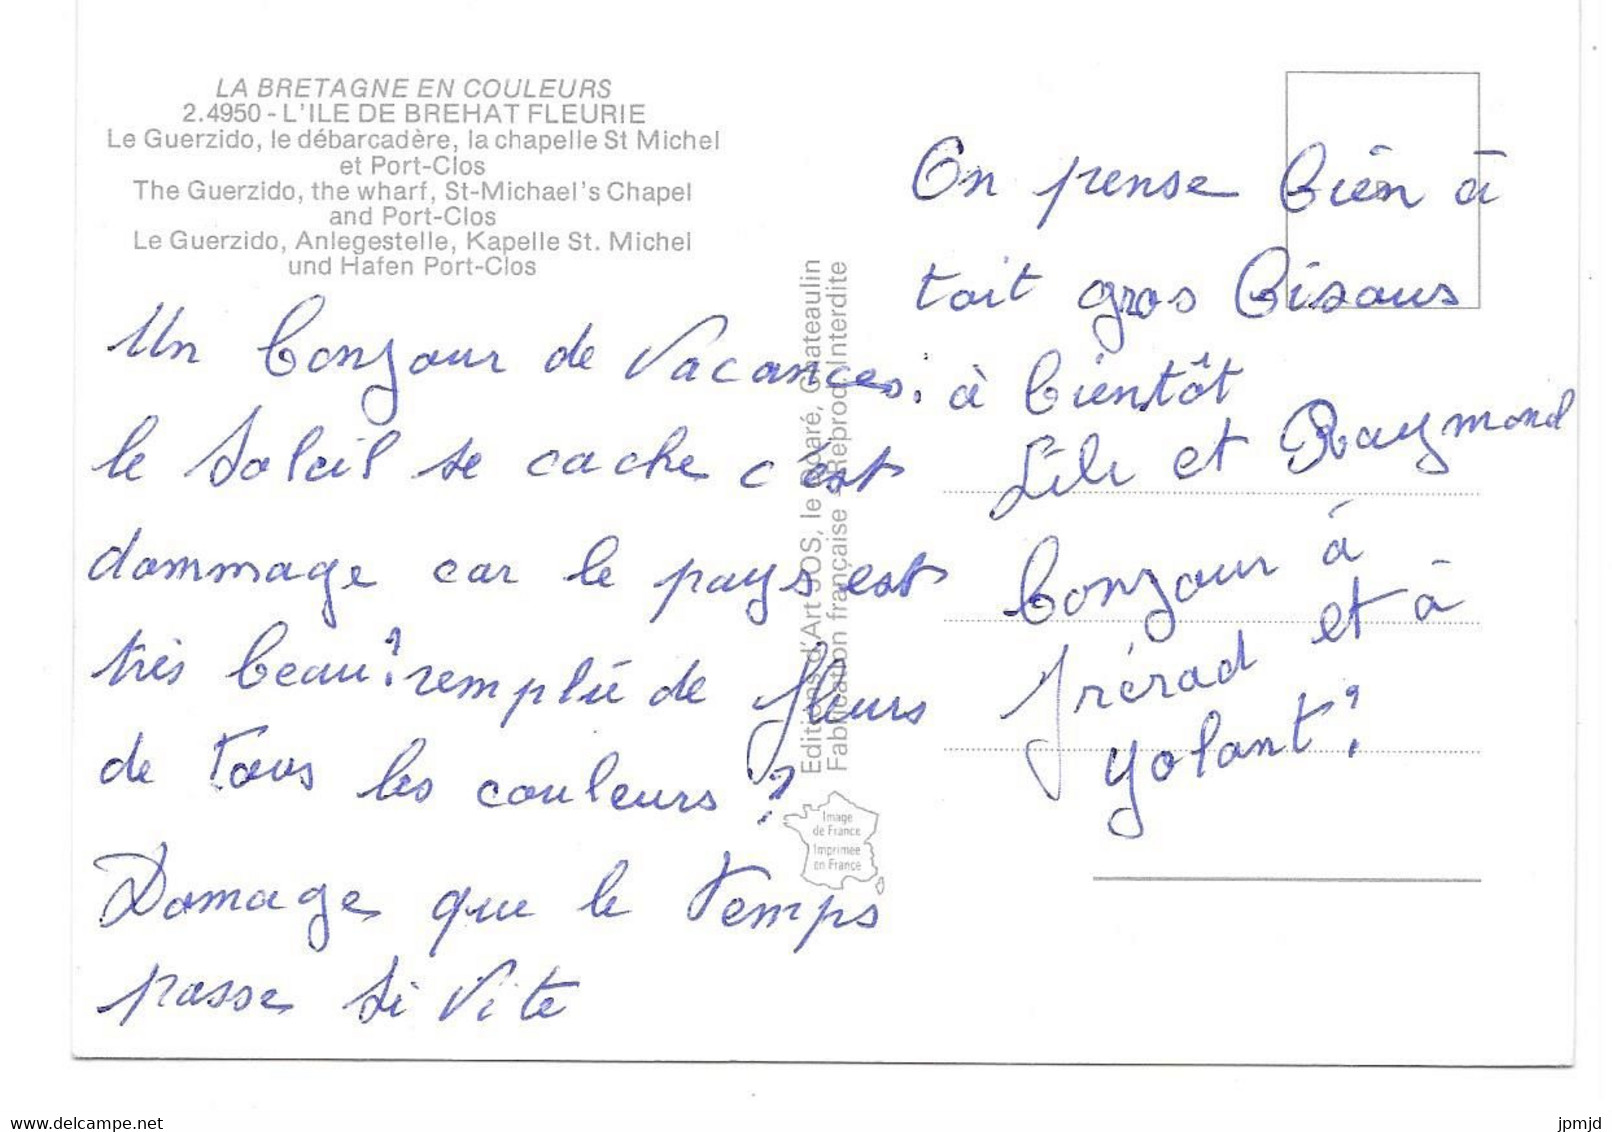 LA BRETAGNE EN COULEURS
2.4950 - L'ILE DE BREHAT FLEURIE
Le Guerzido, le débarcadère, la chapelle St Michel
et Port-Clos
The Guerzido, the wharf, St-Michael's Chapel
and Port-Clos
Le Guerzido, Anlegestelle, Kapelle St. Michel
und Hafen Port-Clos
Un bonjour de Vacances.
le Soleil se cache c'est
dommage car le pays est
très beau! remplie de fleurs
de tous les couleurs!
Domage que le temps
passe si vite
Editions d'Art JOS, le Doaré, Chateaulin
Fabrication française - Reprod. Interdite
Image
de France
Imprimée
en France
On pense bien à
toit gros bisous
à bientôt
Lili et Raymond
bonjour à
frérad et à
yolant!
www.delcampe.net
jpmjd